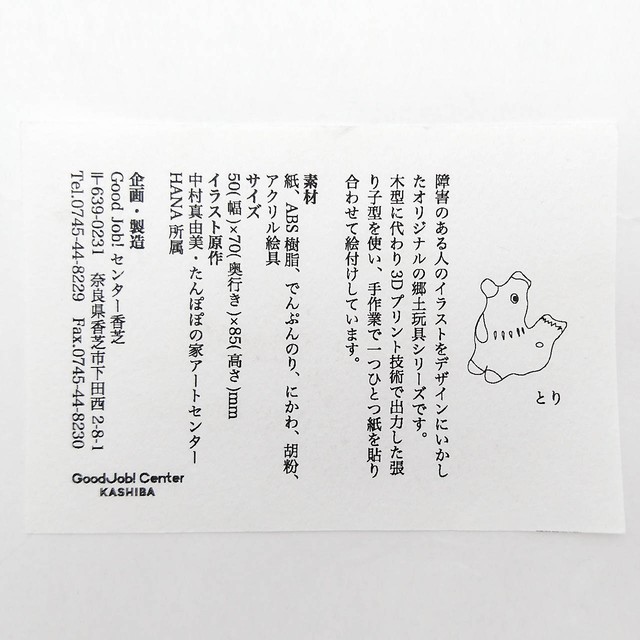 とり
障害のある人のイラストをデザインにいかし
たオリジナルの郷土玩具シリーズです。
木型に代わり3Dプリント技術で出力した張
り子型を使い、手作業で一つひとつ紙を貼り
合わせて絵付けしています。
素材
紙、ABS樹脂、でんぷんのり、にかわ、胡粉、
アクリル絵具
サイズ
50(幅)×70(奥行き)×85(高さ)mm
イラスト原作
中村真由美・たんぽぽの家アートセンター
HANA所属
企画・製造
Good Job! センター香芝
〒639-0231 奈良県香芝市下田西2-8-1
Tel.0745-44-8229 Fax.0745-44-8230
GoodJob! Center
KASHIBA